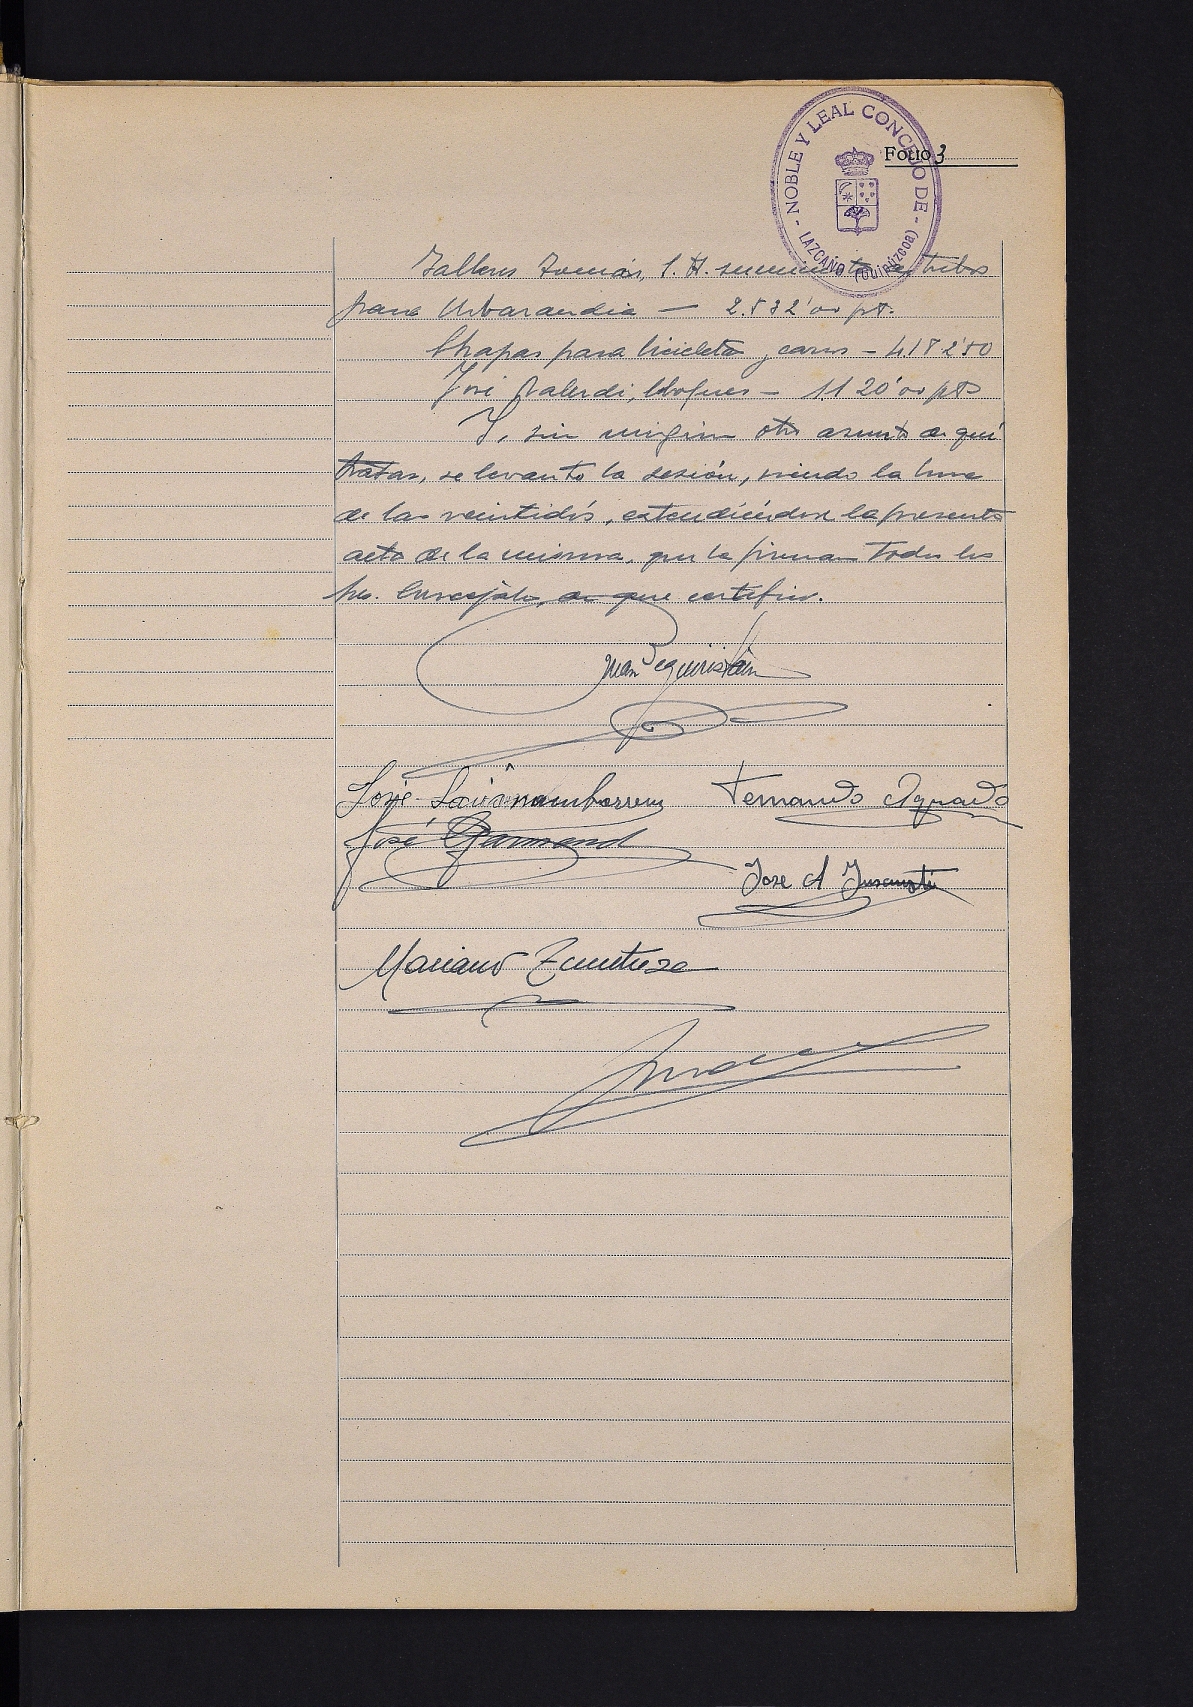 NOBLE Y LEAL CONCEJO DE
LAZCANO (GUIPÚZCOA)
Folio 3
Talleres Tomás, S. A. suministro de tubos
para Urbarandia — 2.532'00 pts.
Chapas para bicicletas y carros — 4.182'50
José Balerdi, Chofuer — 1.120'00 pts
Y, sin ningún otro asunto de qué
tratar, se levantó la sesión, siendo la hora
de las veintidós, extendiéndose la presente
acta de la misma, que la firman todos los
Srs. Concejales, de que certifico.
Juan Beguiristáin
José
Fernando Aguado
José Garmend
Jose A Insausti
Mariano Zunturza